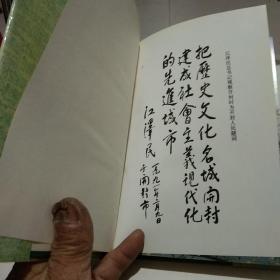 江泽民总书记视察开封时为开封人民题词
把歷史文化名城開封
建成社會主義現代化
的先進城市
江澤民
一九九一年二月九日
于開封市